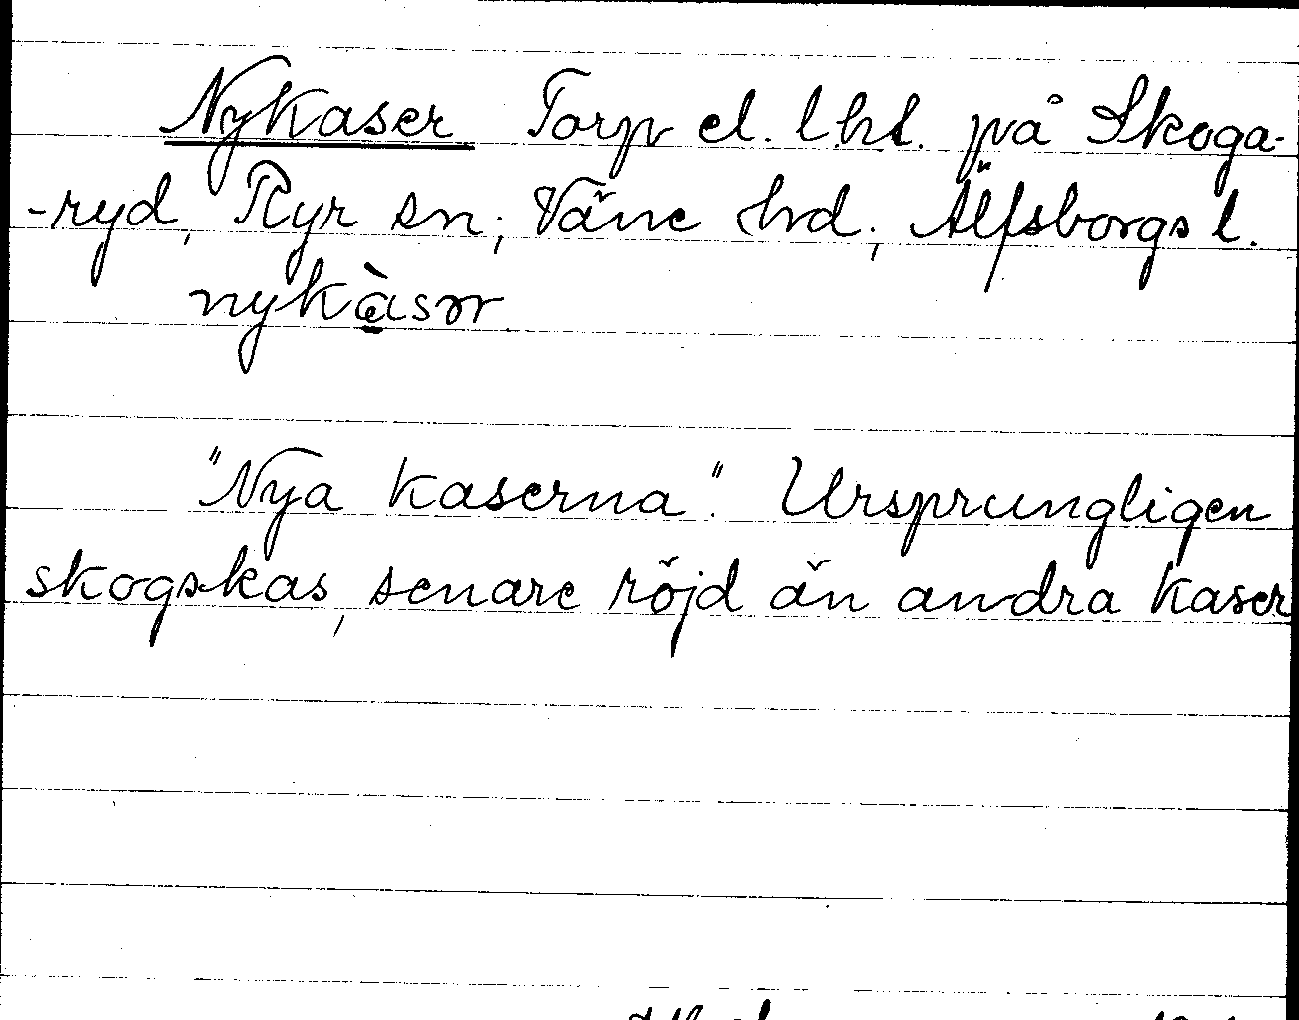 Nykaser Torp el. lht. på Skoga-
-ryd, Ryr sn; Väne hd; Älfsborgs l.
nykàsər
"Nya kaserna". Ursprungligen
skogskas, senare röjd än andra kaser